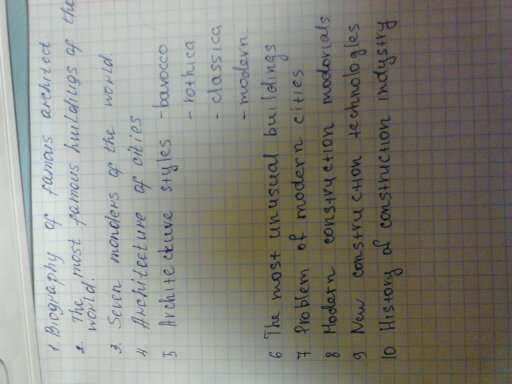 1. Biography of famous architect
2 The most famous buildings of the
world.
3. Seven wonders of the world
4 Architecture of cities
5 Architecture styles - barocco
- rothica
- classica
- modern
6 The most unusual buildings
7 Problem of modern cities
8 Modern construction matorials
9 New construction technologies
10 History of construction industry